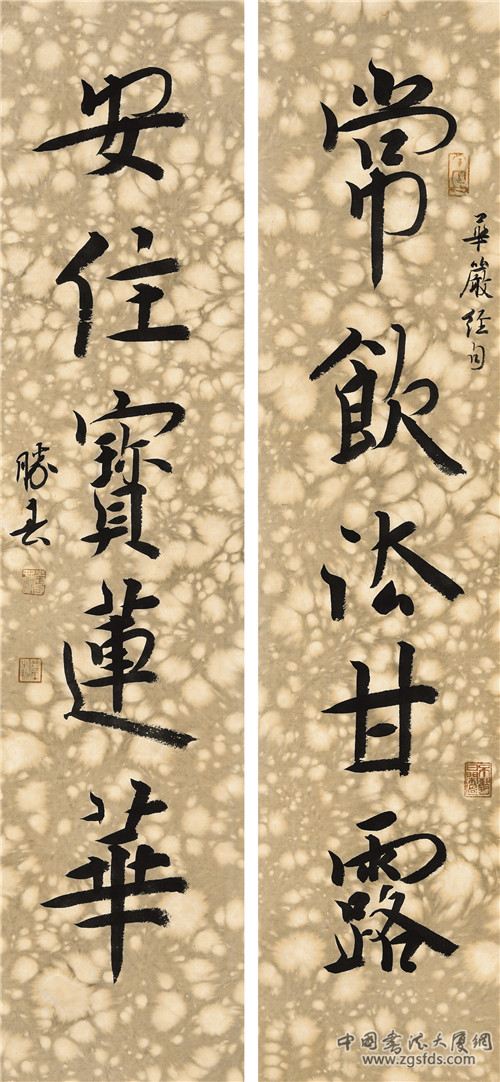 常飲法甘露
華嚴经句
安住寶蓮華
勝
中国書法大厦网
www.zgsfds.com